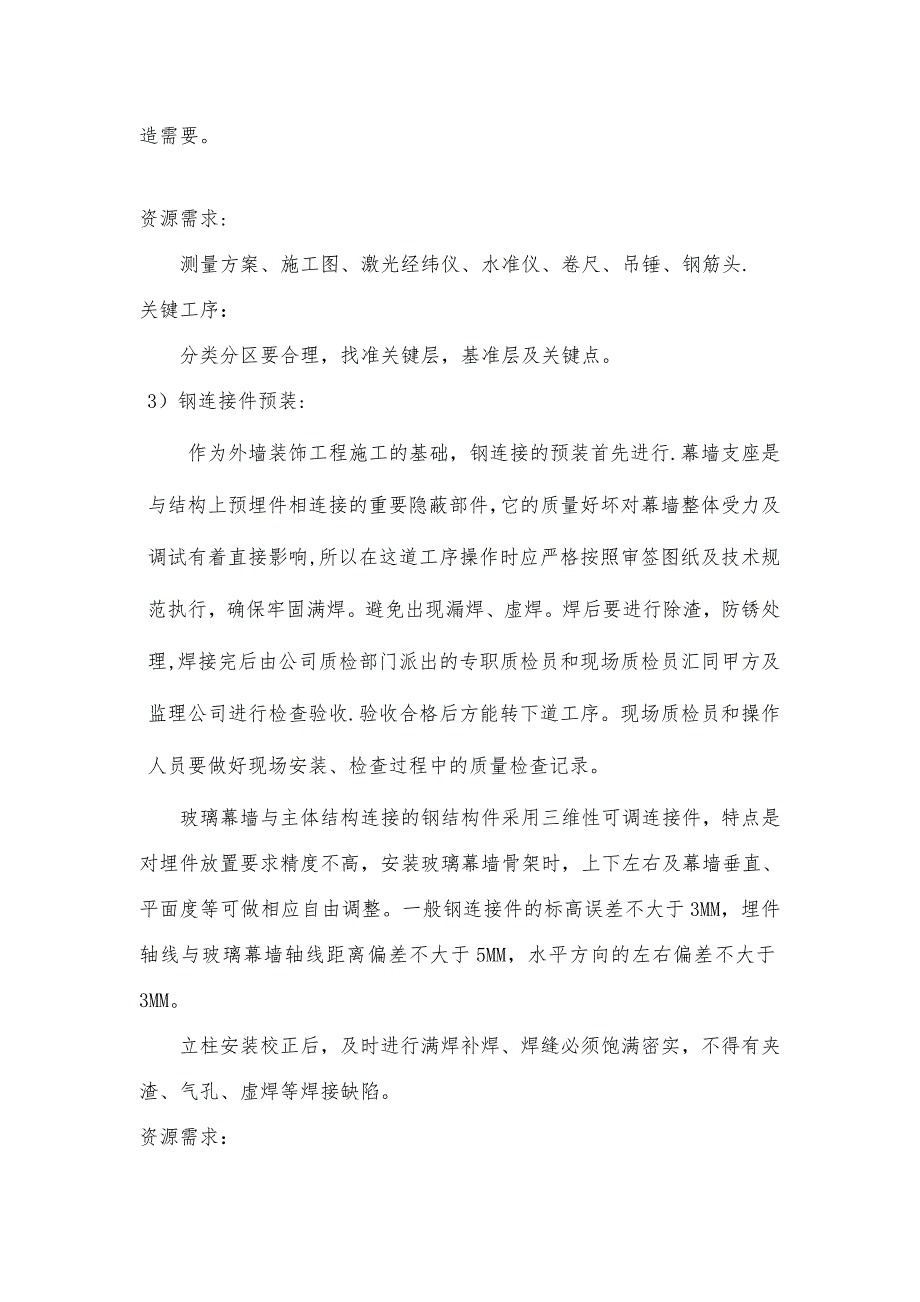 造需要。
资源需求:
测量方案、施工图、激光经纬仪、水准仪、卷尺、吊锤、钢筋头.
关键工序：
分类分区要合理，找准关键层，基准层及关键点。
3）钢连接件预装:
作为外墙装饰工程施工的基础，钢连接的预装首先进行.幕墙支座是
与结构上预埋件相连接的重要隐蔽部件,它的质量好坏对幕墙整体受力及
调试有着直接影响,所以在这道工序操作时应严格按照审签图纸及技术规
范执行，确保牢固满焊。避免出现漏焊、虚焊。焊后要进行除渣，防锈处
理,焊接完后由公司质检部门派出的专职质检员和现场质检员汇同甲方及
监理公司进行检查验收.验收合格后方能转下道工序。现场质检员和操作
人员要做好现场安装、检查过程中的质量检查记录。
玻璃幕墙与主体结构连接的钢结构件采用三维性可调连接件，特点是
对埋件放置要求精度不高，安装玻璃幕墙骨架时，上下左右及幕墙垂直、
平面度等可做相应自由调整。一般钢连接件的标高误差不大于3MM，埋件
轴线与玻璃幕墙轴线距离偏差不大于5MM，水平方向的左右偏差不大于
3MM。
立柱安装校正后，及时进行满焊补焊、焊缝必须饱满密实，不得有夹
渣、气孔、虚焊等焊接缺陷。
资源需求：